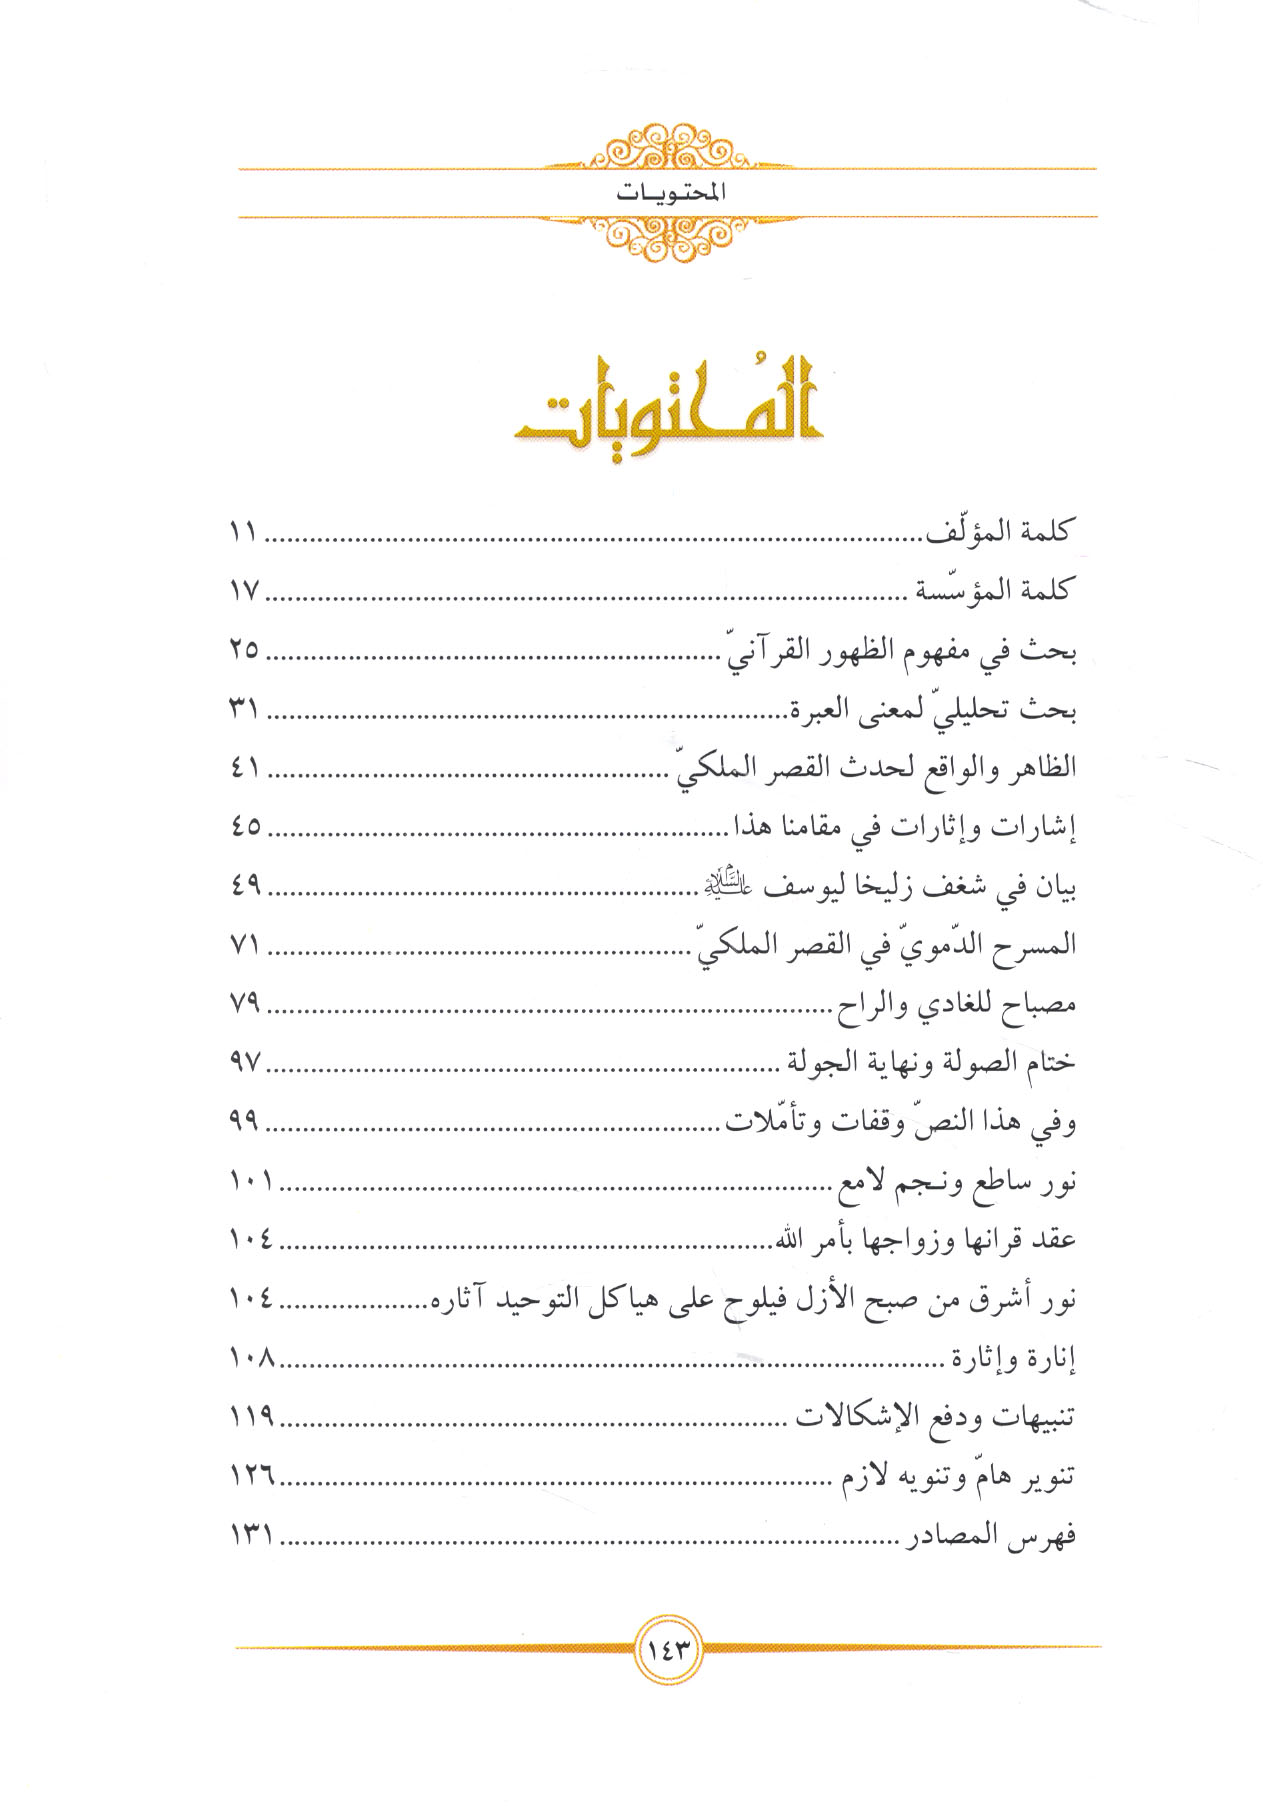 المحتويـات
المُحتويات
كلمة المؤلّف ........ ١١
كلمة المؤسّسة ........ ١٧
بحث في مفهوم الظهور القرآنيّ ........ ٢٥
بحث تحليليّ لمعنى العبرة ........ ٣١
الظاهر والواقع لحدث القصر الملكيّ ........ ٤١
إشارات وإثارات في مقامنا هذا ........ ٤٥
بيان في شغف زليخا ليوسف عليه السّلام ........ ٤٩
المسرح الدّمويّ في القصر الملكيّ ........ ٧١
مصباح للغادي والراح ........ ٧٩
ختام الصولة ونهاية الجولة ........ ٩٧
وفي هذا النصّ وقفات وتأمّلات ........ ٩٩
نور ساطع ونـجم لامع ........ ١٠١
عقد قرانها وزواجها بأمر الله ........ ١٠٤
نور أشرق من صبح الأزل فيلوح على هياكل التوحيد آثاره ........ ١٠٤
إنارة وإثارة ........ ١٠٨
تنبيهات ودفع الإشكالات ........ ١١٩
تنوير هامّ وتنويه لازم ........ ١٢٦
فهرس المصادر ........ ١٣١
١٤٣